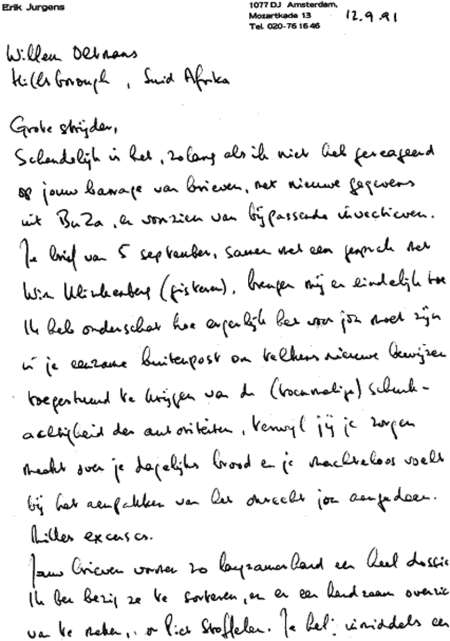 Erik Jurgens
1077 DJ Amsterdam,
Mozartkade 13
Tel. 020-76 16 46
12.9.91
Willem Oltmans
Hillsborough, Suid Afrika
Grote strijder,
Schandelijk is het, zolang als ik niet heb gereageerd
op jouw barrage van brieven, met nieuwe gegevens
uit BuZa, en voorzien van bijpassende invectieven.
Je brief van 5 september, samen met een gesprek met
Wim Klinkenberg (gisteren), brengen mij er eindelijk toe
Ik heb onderschat hoe ergerlijk het voor jou moet zijn
in je eenzame buitenpost om telkens nieuwe bewijzen
toegestuurd te krijgen van de (voormalige) schurk-
achtigheid der autoriteiten, terwijl jij je zorgen
maakt over je dagelijks brood en je machteloos voelt
bij het aanpakken van het onrecht jou aangedaan.
Milles excuses.
Jouw brieven vormen zo langzamerhand een heel dossie
Ik ben bezig ze te sorteren, en er een handzaam overzic
van te maken, Piet Stoffelen. Je hebt inmiddels een